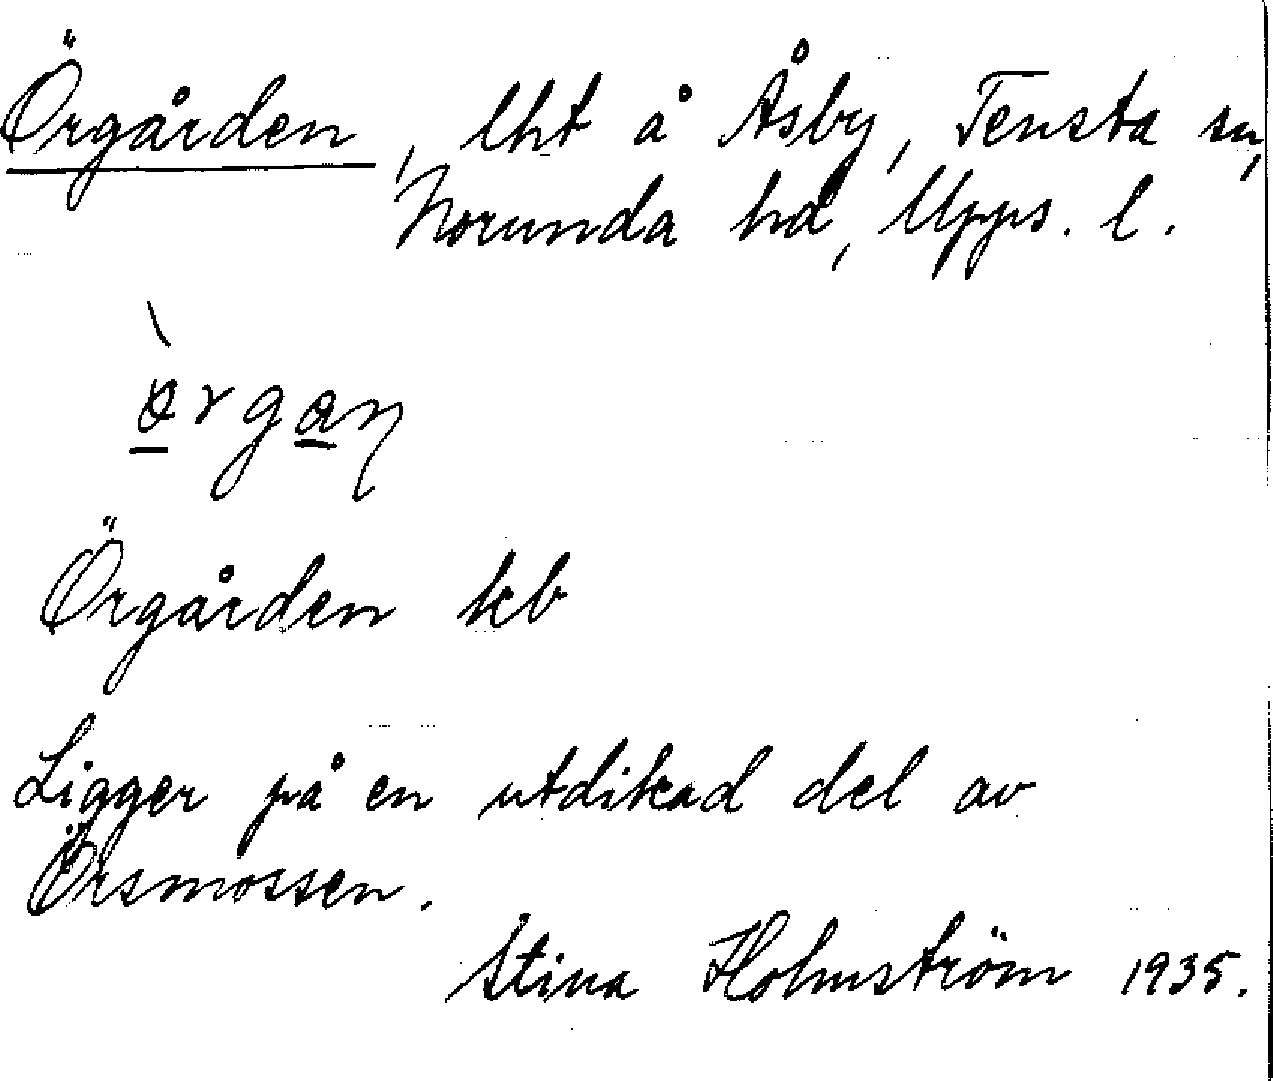 Örgården, lht å Åsby, Tensta sn,
Norunda hd, Upps. l.
Örgården kb
Ligger på en utdikad del av
Örsmossen.
Stina Holmström 1935.